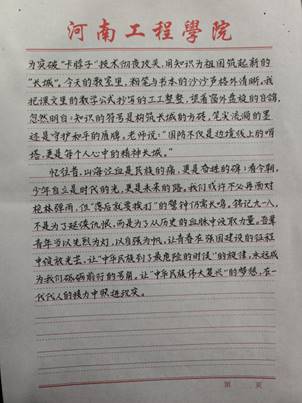 河南工程學院
为突破“卡脖子”技术彻夜攻关，用知识为祖国筑起新的
“长城”。今天的教室里，粉笔与书本的沙沙声格外清晰。我
把课文里的数学公式抄写的工工整整，望着窗外盘旋的白鸽，
忽然明白：知识的符号是构筑长城的方砖，笔尖流淌的墨
迹是守护和平的盾牌。老师说：“国防不仅是边境线上的哨
塔，更是每个人心中的精神长城。”
忆往昔，山海泣血是民族的痛，更是奋进的碑；看今朝，
少年自立是时代的光，更是未来的路。我们或许不必再面对
枪林弹雨，但“落后就要挨打”的警钟仍需长鸣。铭记九一八，
不是为了延续仇恨，而是为了从历史的血脉中汲取力量。吾辈
青年当以先烈为灯，以自强为帆，让青春在强国建设的征程
中绽放光芒，让“中华民族到了最危险的时候”的旋律，永远成
为我们砥砺前行的号角。让“中华民族伟大复兴”的梦想，在一
代代人的接力中照进现实。
第 页